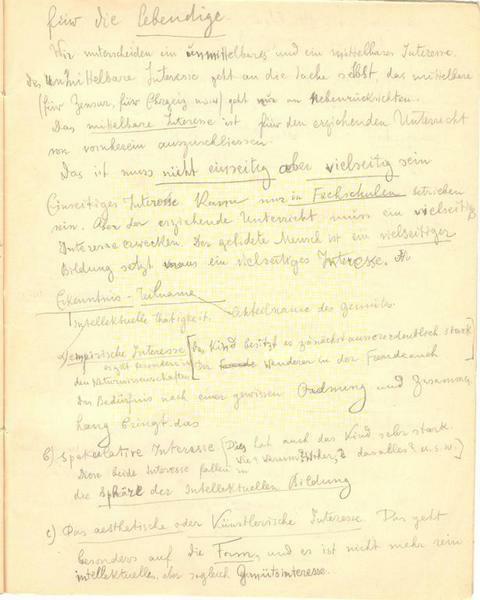 für die lebendige.
Wir unterscheiden ein unmittelbares und ein mittelbares Interesse.
Das unmittelbare Interesse geht an die Sache selbst, das mittelbare
(für Zensur, für Ehrgeiz u.s.w) geht nur an Nebenrücksichten.
Das mittelbare Interesse ist für den erziehenden Unterricht
von vornherein auszuschliessen.
Das ist muss nicht einseitig aber vielseitig sein
Einseitiges Interesse kann nur in Fachschulen betrieben
sein. Aber der erziehende Unterricht muss ein vielseitig
Interesse erwecken. Der gebildete Mensch ist ein vielseitiger
Bildung setzt voraus ein vielseitiges Interesse.
Erkenntnis - Teilname
Intellektuelle Thätigkeit. Anteilname des Gemüts.
a) empirische Interesse (Das Kind besitzt es zunächst ausserordentlich stark
ergibt besonders in Der Wanderer in der Fremde auch
den Naturwissenschaften
Das Bedürfnis nach einer gewissen Ordnung und Zusammen
hang bringt das
b) spekulative Interesse (Dies hat auch das Kind sehr stark.
Wie? Warum? Woher? das alles? u.s.w.)
Diese beide Interesse fallen in
die Sphäre der Intellektuellen Bildung
c) Das aesthetische oder Künstlerische Interesse. Das geht
besonders auf die Form, und es ist nicht mehr rein
intellektuelles, aber zugleich Gemütsinteresse.